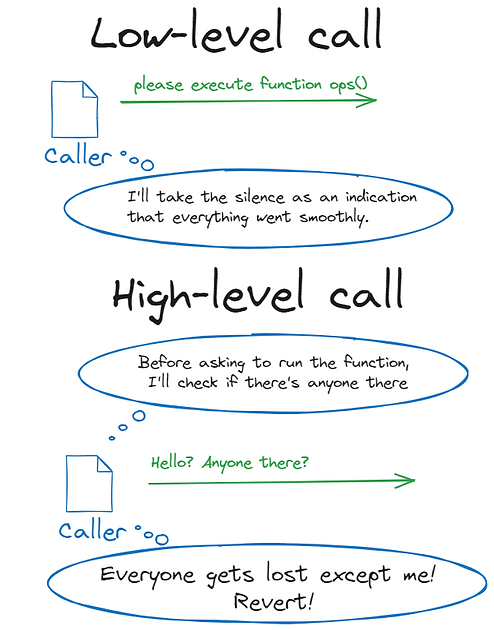 Low-level call
please execute function ops()
Caller
I'll take the silence as an indication
that everything went smoothly.
High-level call
Before asking to run the function,
I'll check if there's anyone there
Hello? Anyone there?
Caller
Everyone gets lost except me!
Revert!